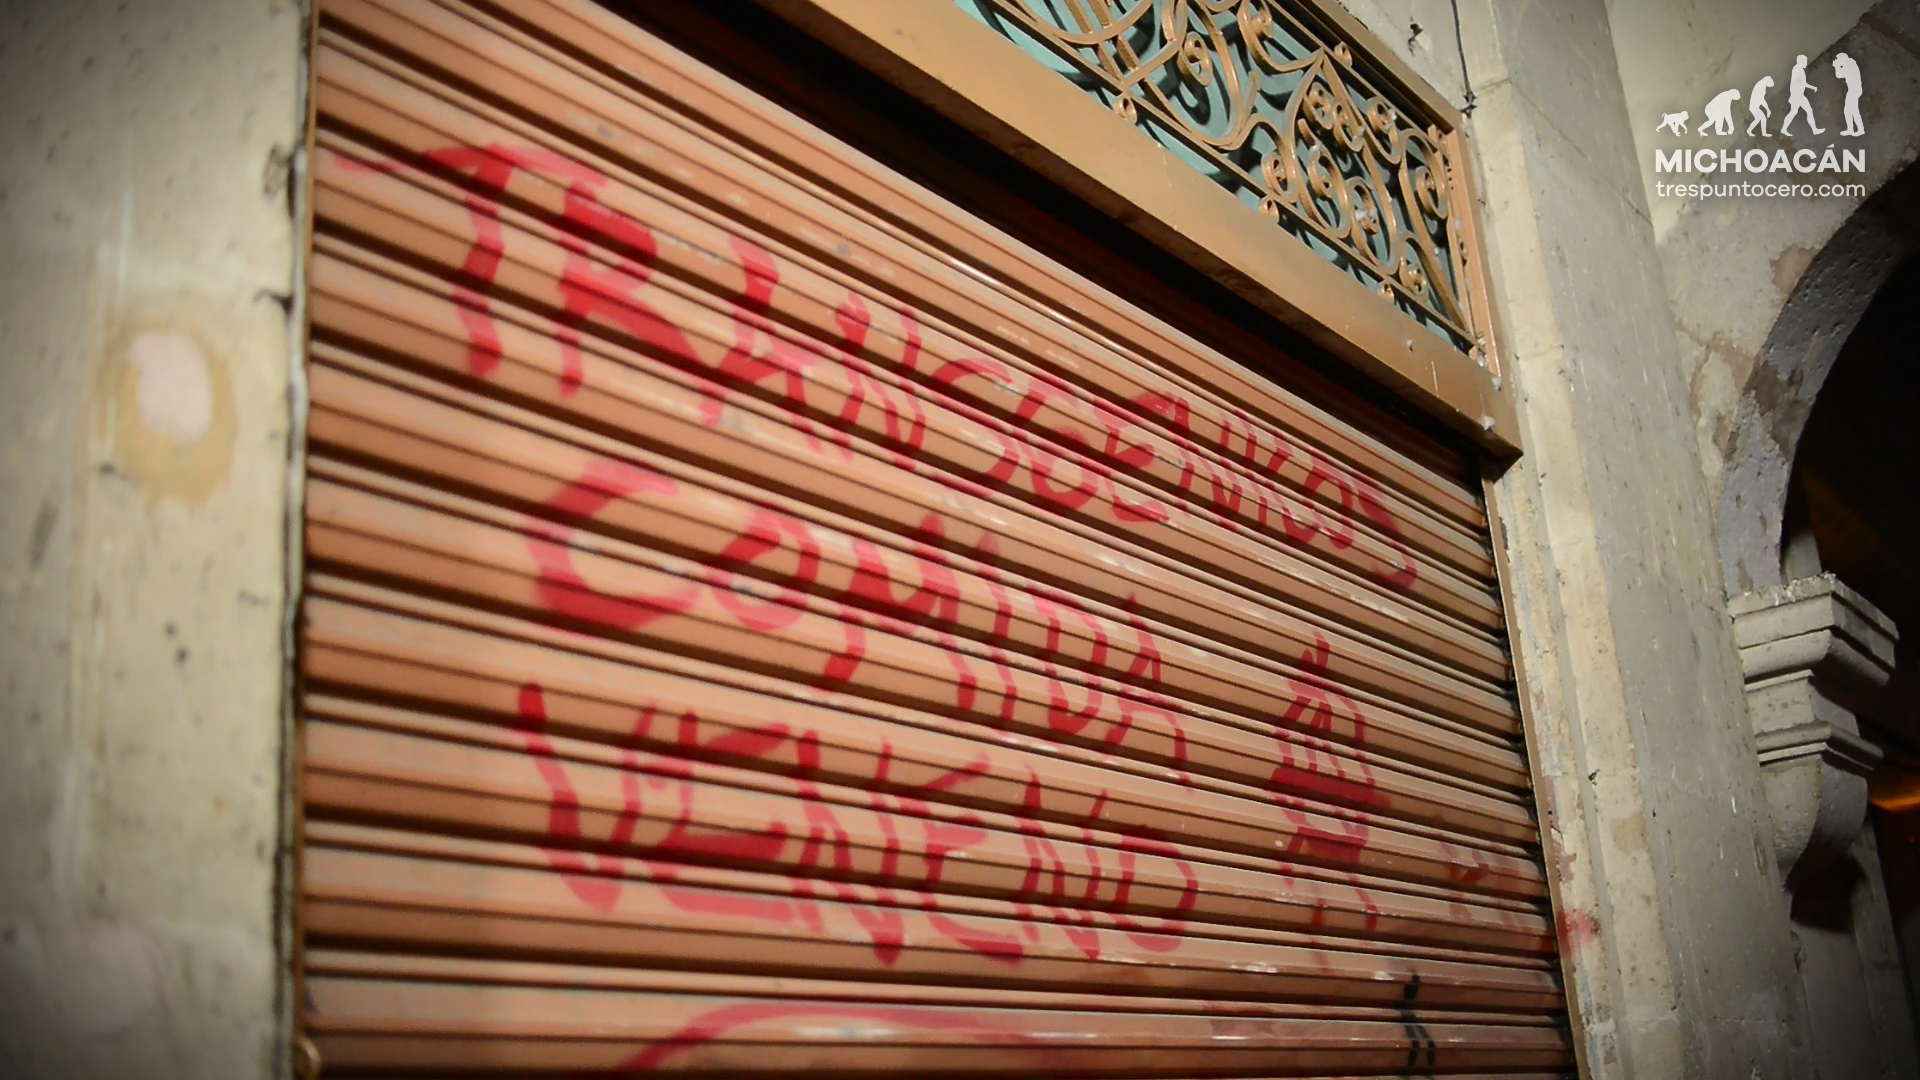 MICHOACÁN
trespuntocero.com
TRANSGENICOS
COMIDA
VENENO